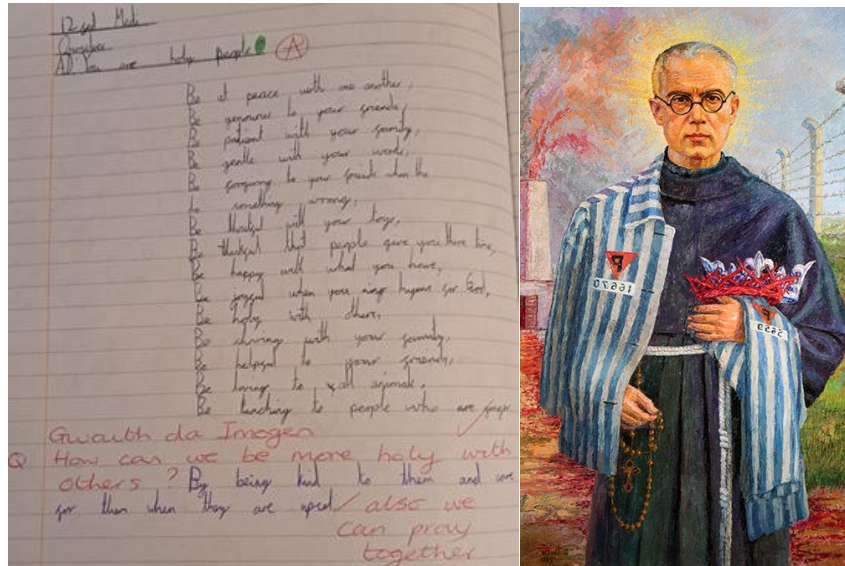 12 fed Medi
AD You are holy people A
Be at peace with one another,
Be generous to your friends,
Be patient with your family,
Be gentle with your words,
Be forgiving to your friends when the
do something wrong,
Be thankful with your toys,
Be thankful that people give you there time,
Be happy with what you have,
Be joyful when you sing hymns for God,
Be holy with others,
Be with your family,
Be helpful to your friends,
Be loving to all animals,
Be to people who are poor
Gwaith da Imogen
Q How can we be more holy with
others? By being kind to them and care
for them when they are upset also we
can pray
together
P
16670
P
5659